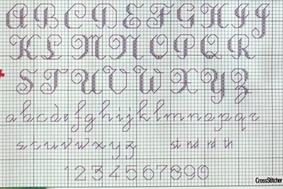 ABCDEFGHIJ
KLMNOPQR
STUVWXYZ
abcdefghijklmnopqr
stuvwxyz
1234567890
CrossStitcher